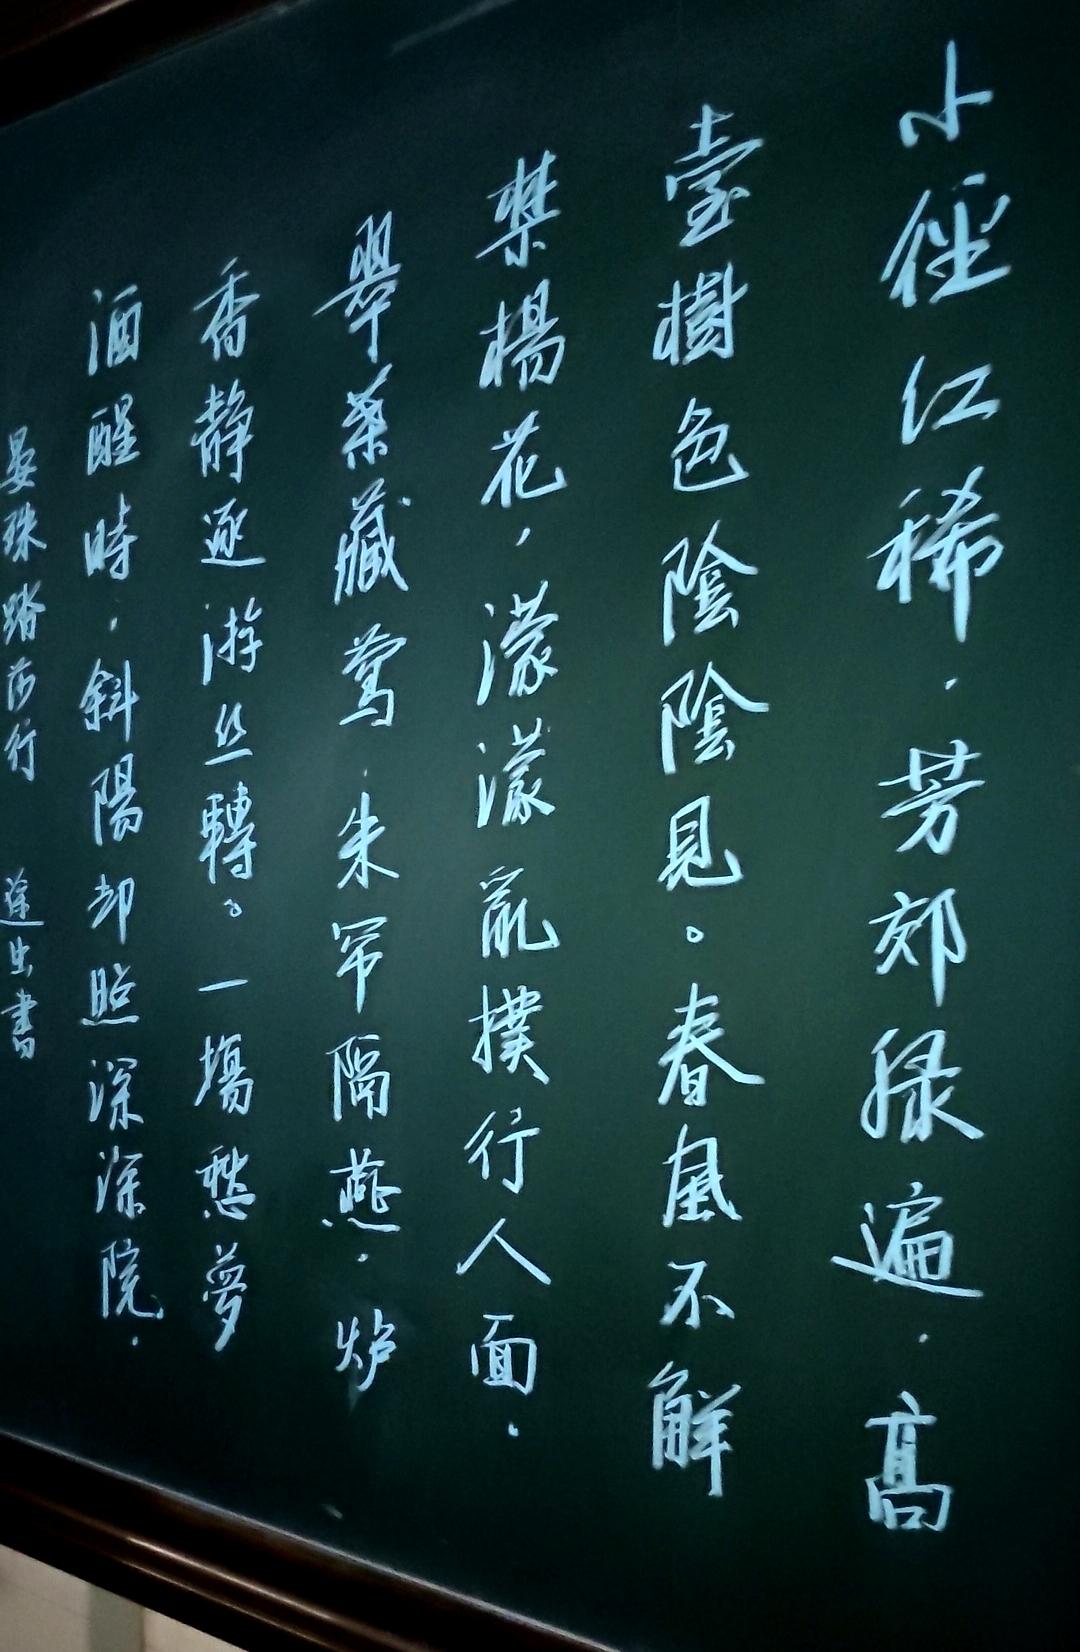 小徑红稀，芳郊绿遍，高
臺樹色陰陰見。春風不解
禁楊花，濛濛亂撲行人面，
翠葉藏鶯，朱帘隔燕，炉
香静逐游丝轉。一塲愁夢
酒醒時，斜陽却照深深院，
晏珠踏莎行 逢生書